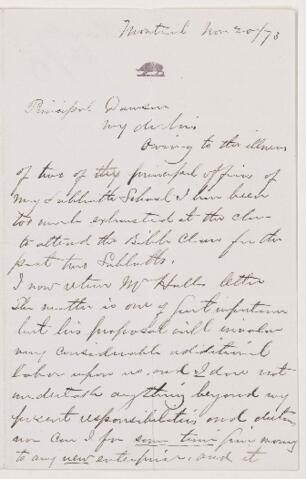 Montreal Nov 20/73
Principal Dawson
My dr Sir
Owing to the illness
of two of the principal officers of
my Sabbath School I have been
too much exhausted at the close
to attend the Bible Class for the
past two Sabbaths.
I now return Mr Halls letter
The matter is one of great importance
but his proposal will involve
very considerable additional
labor upon us, and I dare not
undertake anything beyond my
present responsibilities and duties
nor can I for some time give money
to any new enterprise, and it